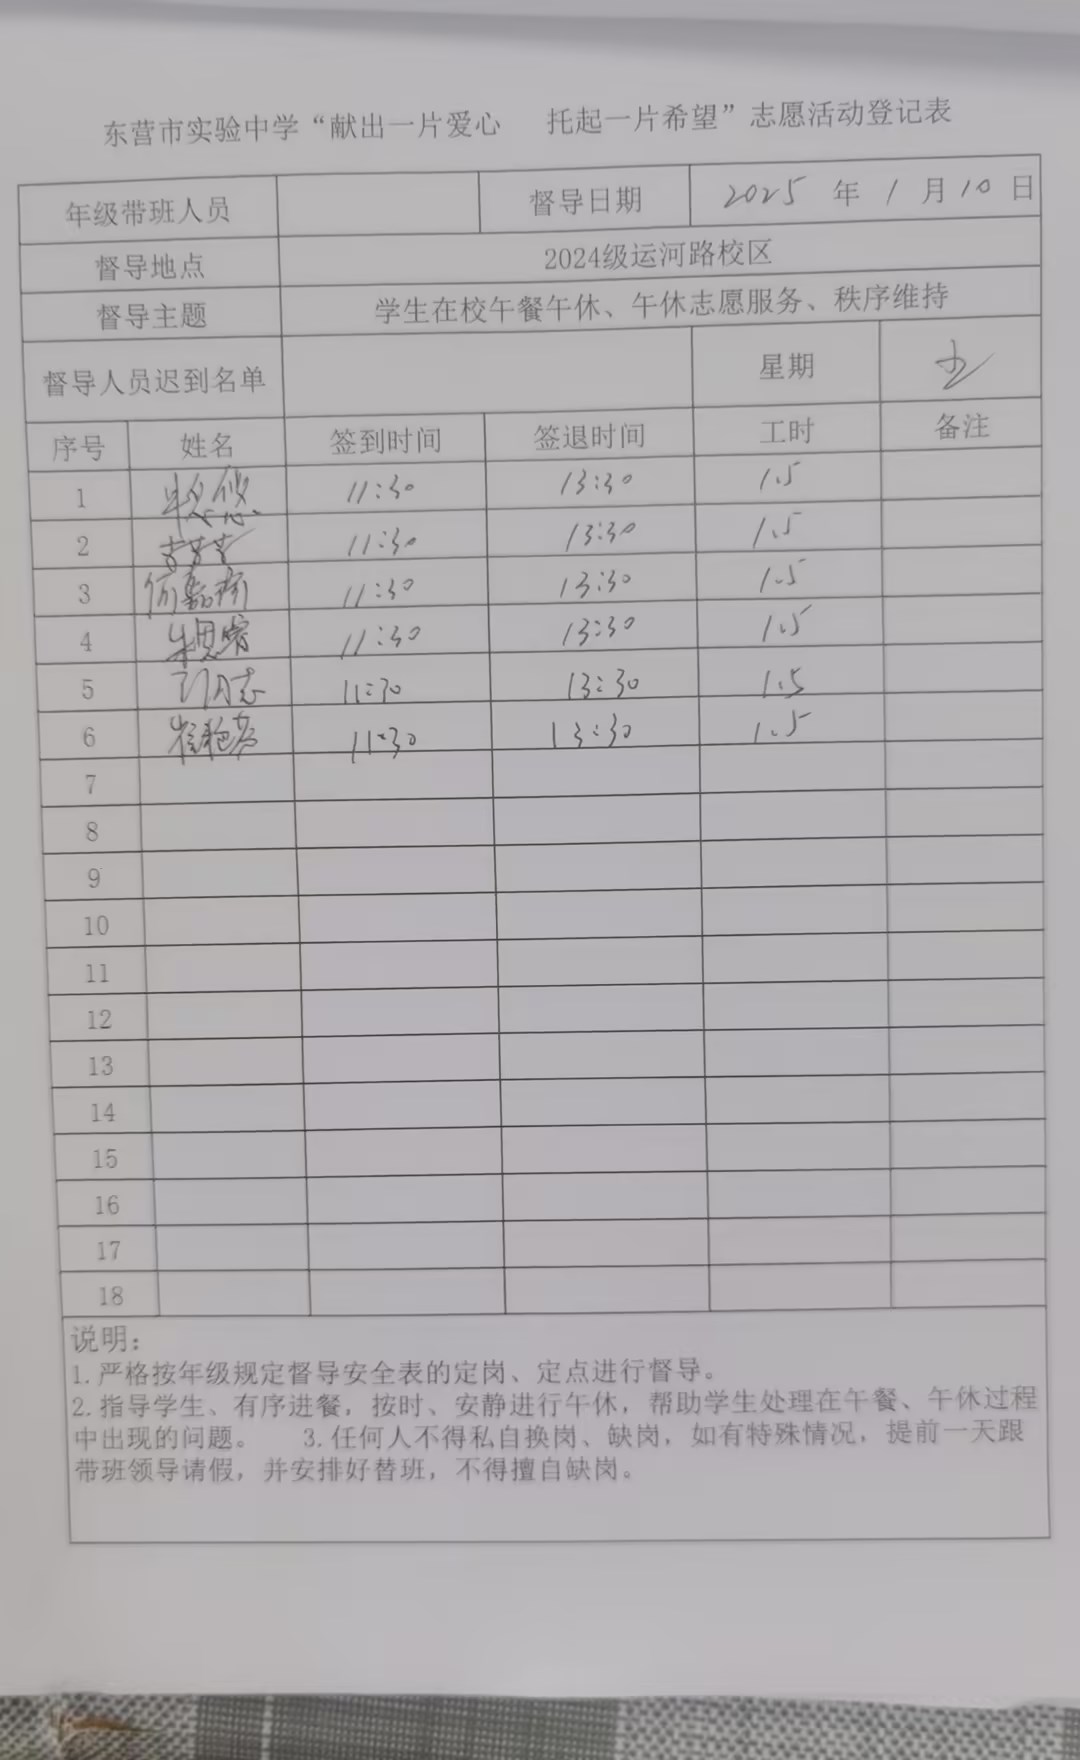 东营市实验中学“献出一片爱心 托起一片希望”志愿活动登记表
年级带班人员 督导日期 2025 年 1 月 10 日
督导地点 2024级运河路校区
督导主题 学生在校午餐午休、午休志愿服务、秩序维持
督导人员迟到名单 星期 五
序号 姓名 签到时间 签退时间 工时 备注
1 11:30 13:30 1.5
2 11:30 13:30 1.5
3 11:30 13:30 1.5
4 朱思睿 11:30 13:30 1.5
5 11:30 13:30 1.5
6 11:30 13:30 1.5
7
8
9
10
11
12
13
14
15
16
17
18
说明：
1.严格按年级规定督导安全表的定岗、定点进行督导。
2.指导学生、有序进餐，按时、安静进行午休，帮助学生处理在午餐、午休过程
中出现的问题。 3.任何人不得私自换岗、缺岗，如有特殊情况，提前一天跟
带班领导请假，并安排好替班，不得擅自缺岗。